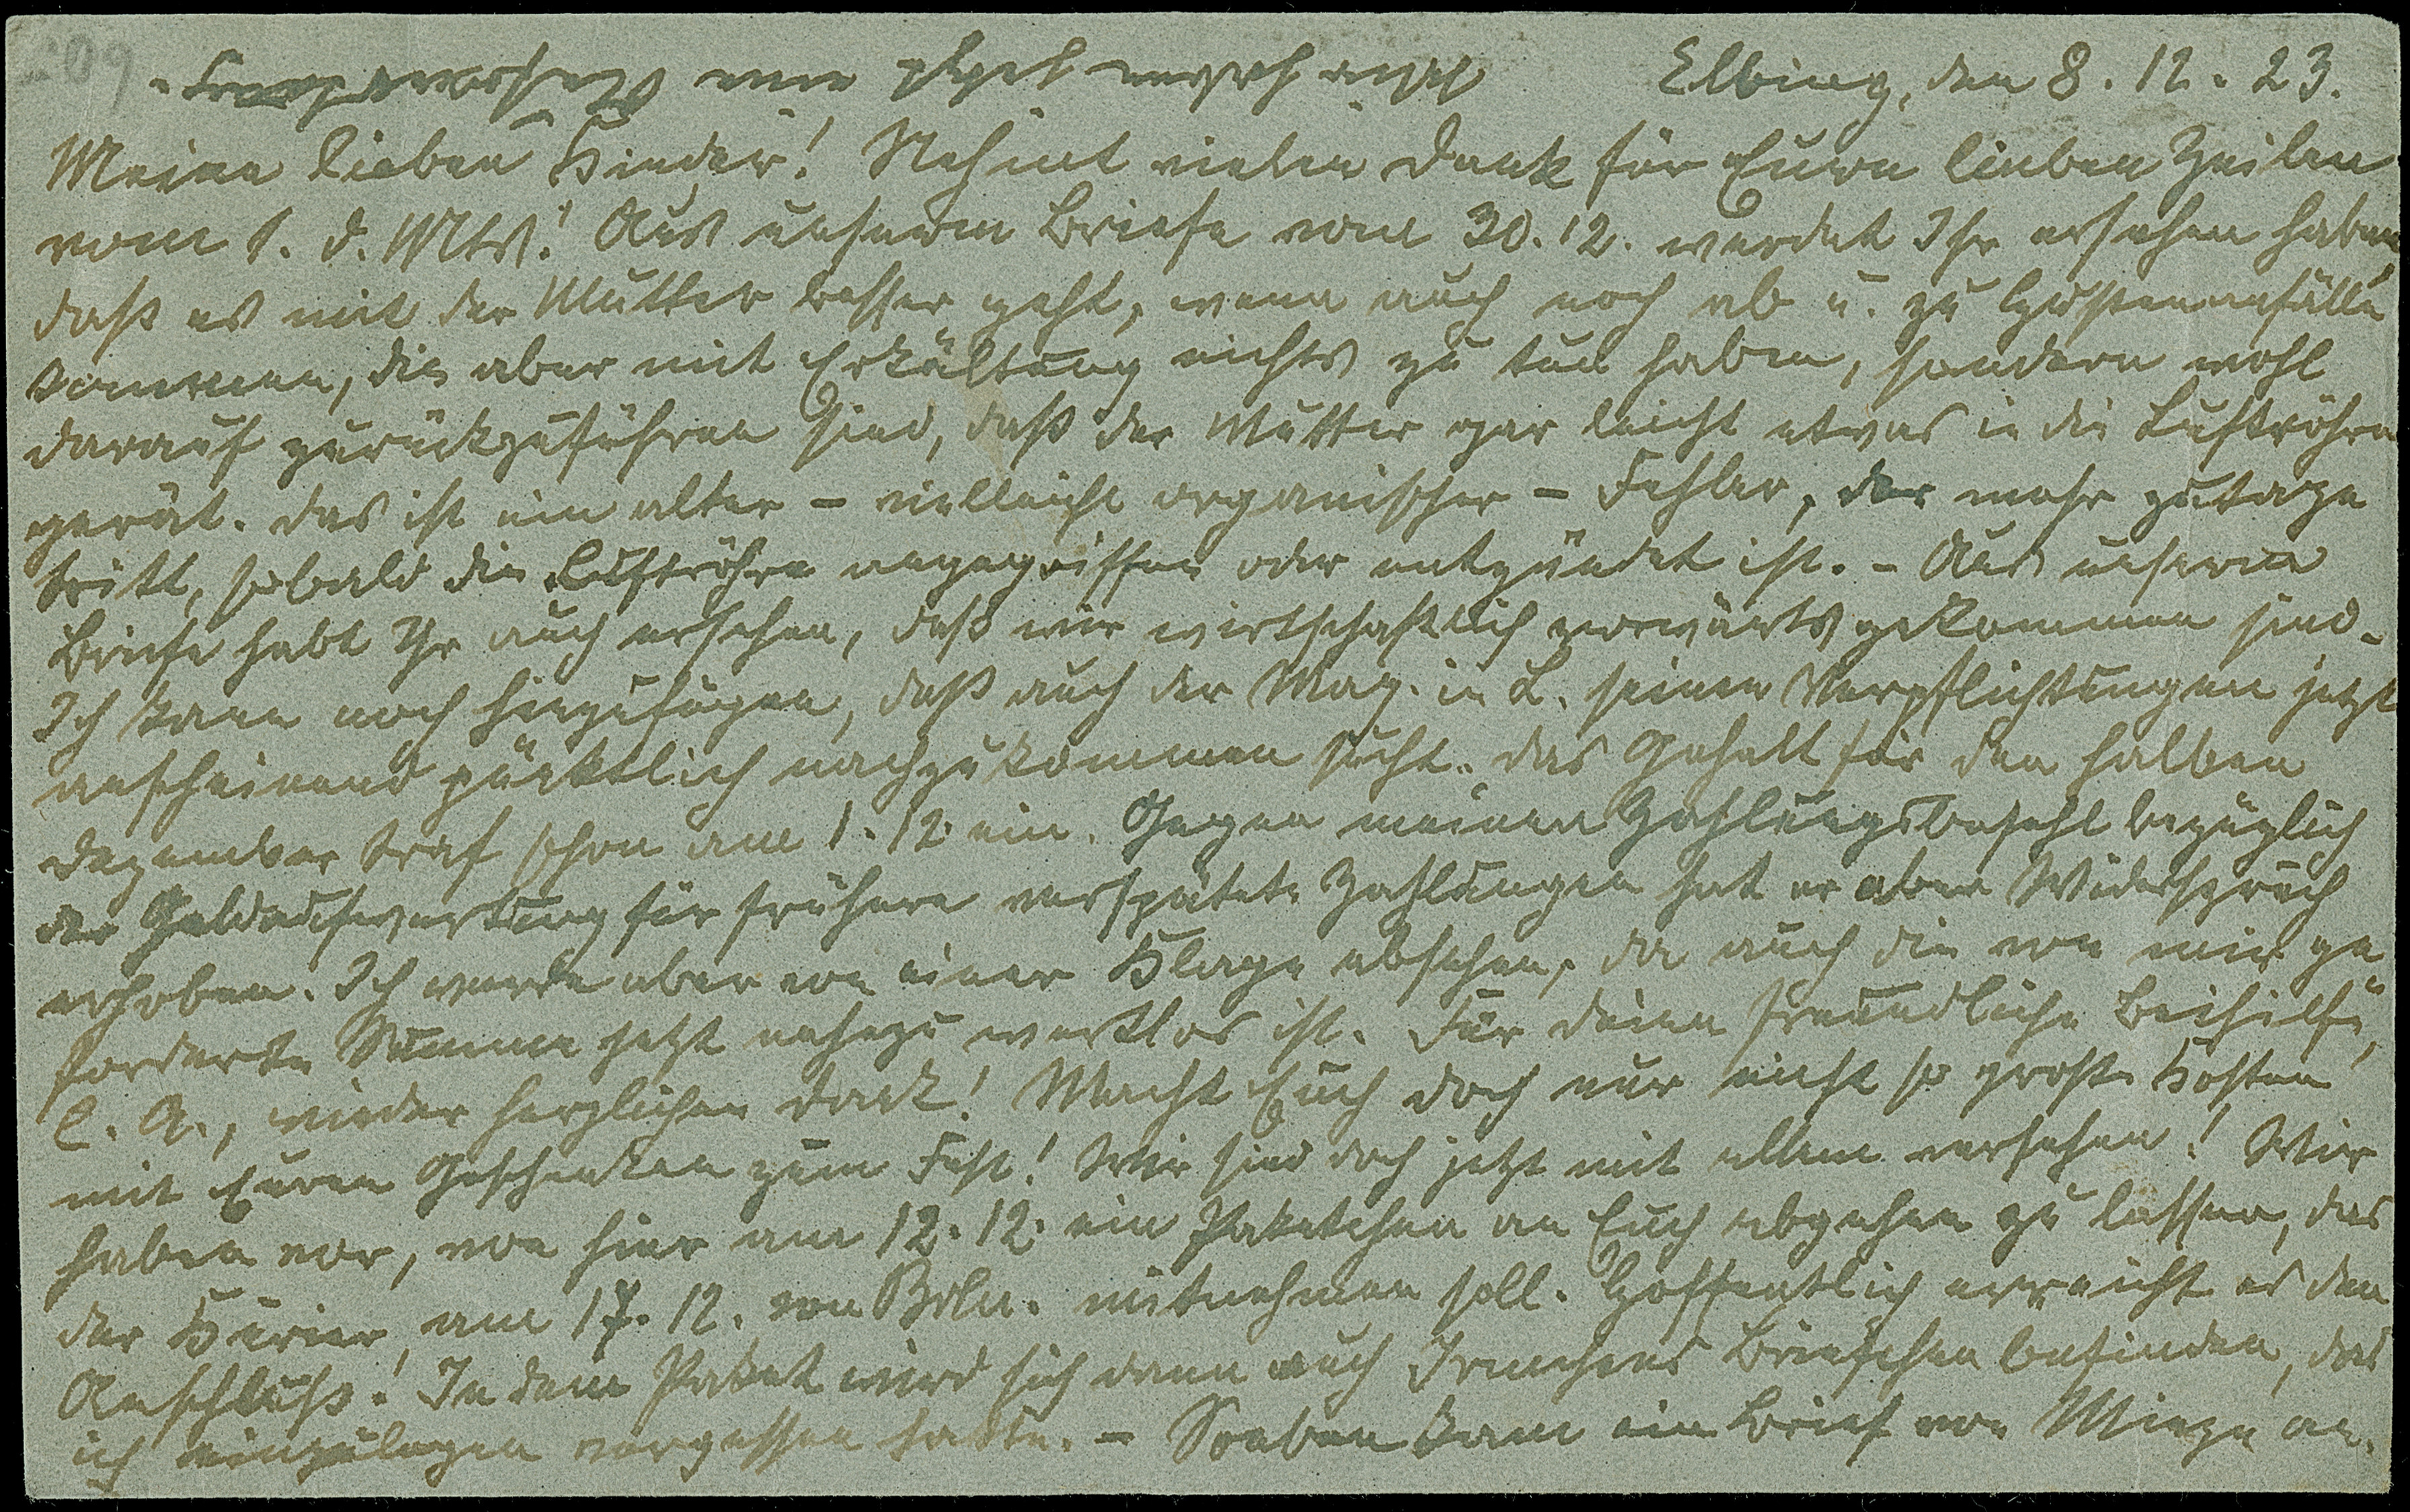 Elbing, den 8.12.23.
Meine lieben Kinder! Nehmt vielen Dank für Euren lieben Zeilen
vom 1. d. Mts.! Aus unserm Briefe vom 30.12. werdet Ihr ersehen haben,
daß es mit der Mutter besser geht, wenn auch noch ab u. zu Hustenanfälle
kommen, die aber mit Erkältung nichts zu tun haben, sondern wohl
darauf zurückzuführen sind, daß der Mutter gar leicht etwas in die Luftröhre
gerät. Das ist ein alter – vielleicht organischer – Fehler, der mehr zutage
tritt, sobald die Luftröhre angegriffen oder entzündet ist. – Aus unserm
Briefe habt Ihr auch ersehen, daß wir wirtschaftlich vorwärts gekommen sind.
Ich kann noch hinzufügen, daß auch der Mag. in L. seinen Verpflichtungen jetzt
anscheinend pünktlich nachzukommen sucht. Das Gehalt für den halben
Dezember traf schon am 1.12. ein. Gegen meinen Zahlungsbefehl bezüglich
der Geldaufwertung für frühere verspätete Zahlungen hat er aber Widerspruch
erhoben. Ich werde aber von einer Klage absehen, da auch die von mir ge
forderte Summe jetzt nahezu wertlos ist. Für Deine freundliche Beihilfe,
l. A., wieder herzlichen Dank! Macht Euch doch nur nicht so große Kosten
mit Euren Geschenken zum Fest! Wir sind doch jetzt mit allem versehen! Wir
haben vor, von hier am 12.12. ein Paketchen an Euch abgehen zu lassen, das
der Kurier am 17.12. von Brln. mitnehmen soll. Hoffentlich erreicht es den
Anschluß! In dem Paket wird sich dann auch Irmchens Briefchen befinden, das
ich einzulegen vergessen hatte. – Soeben kam ein Brief von Mieze an.